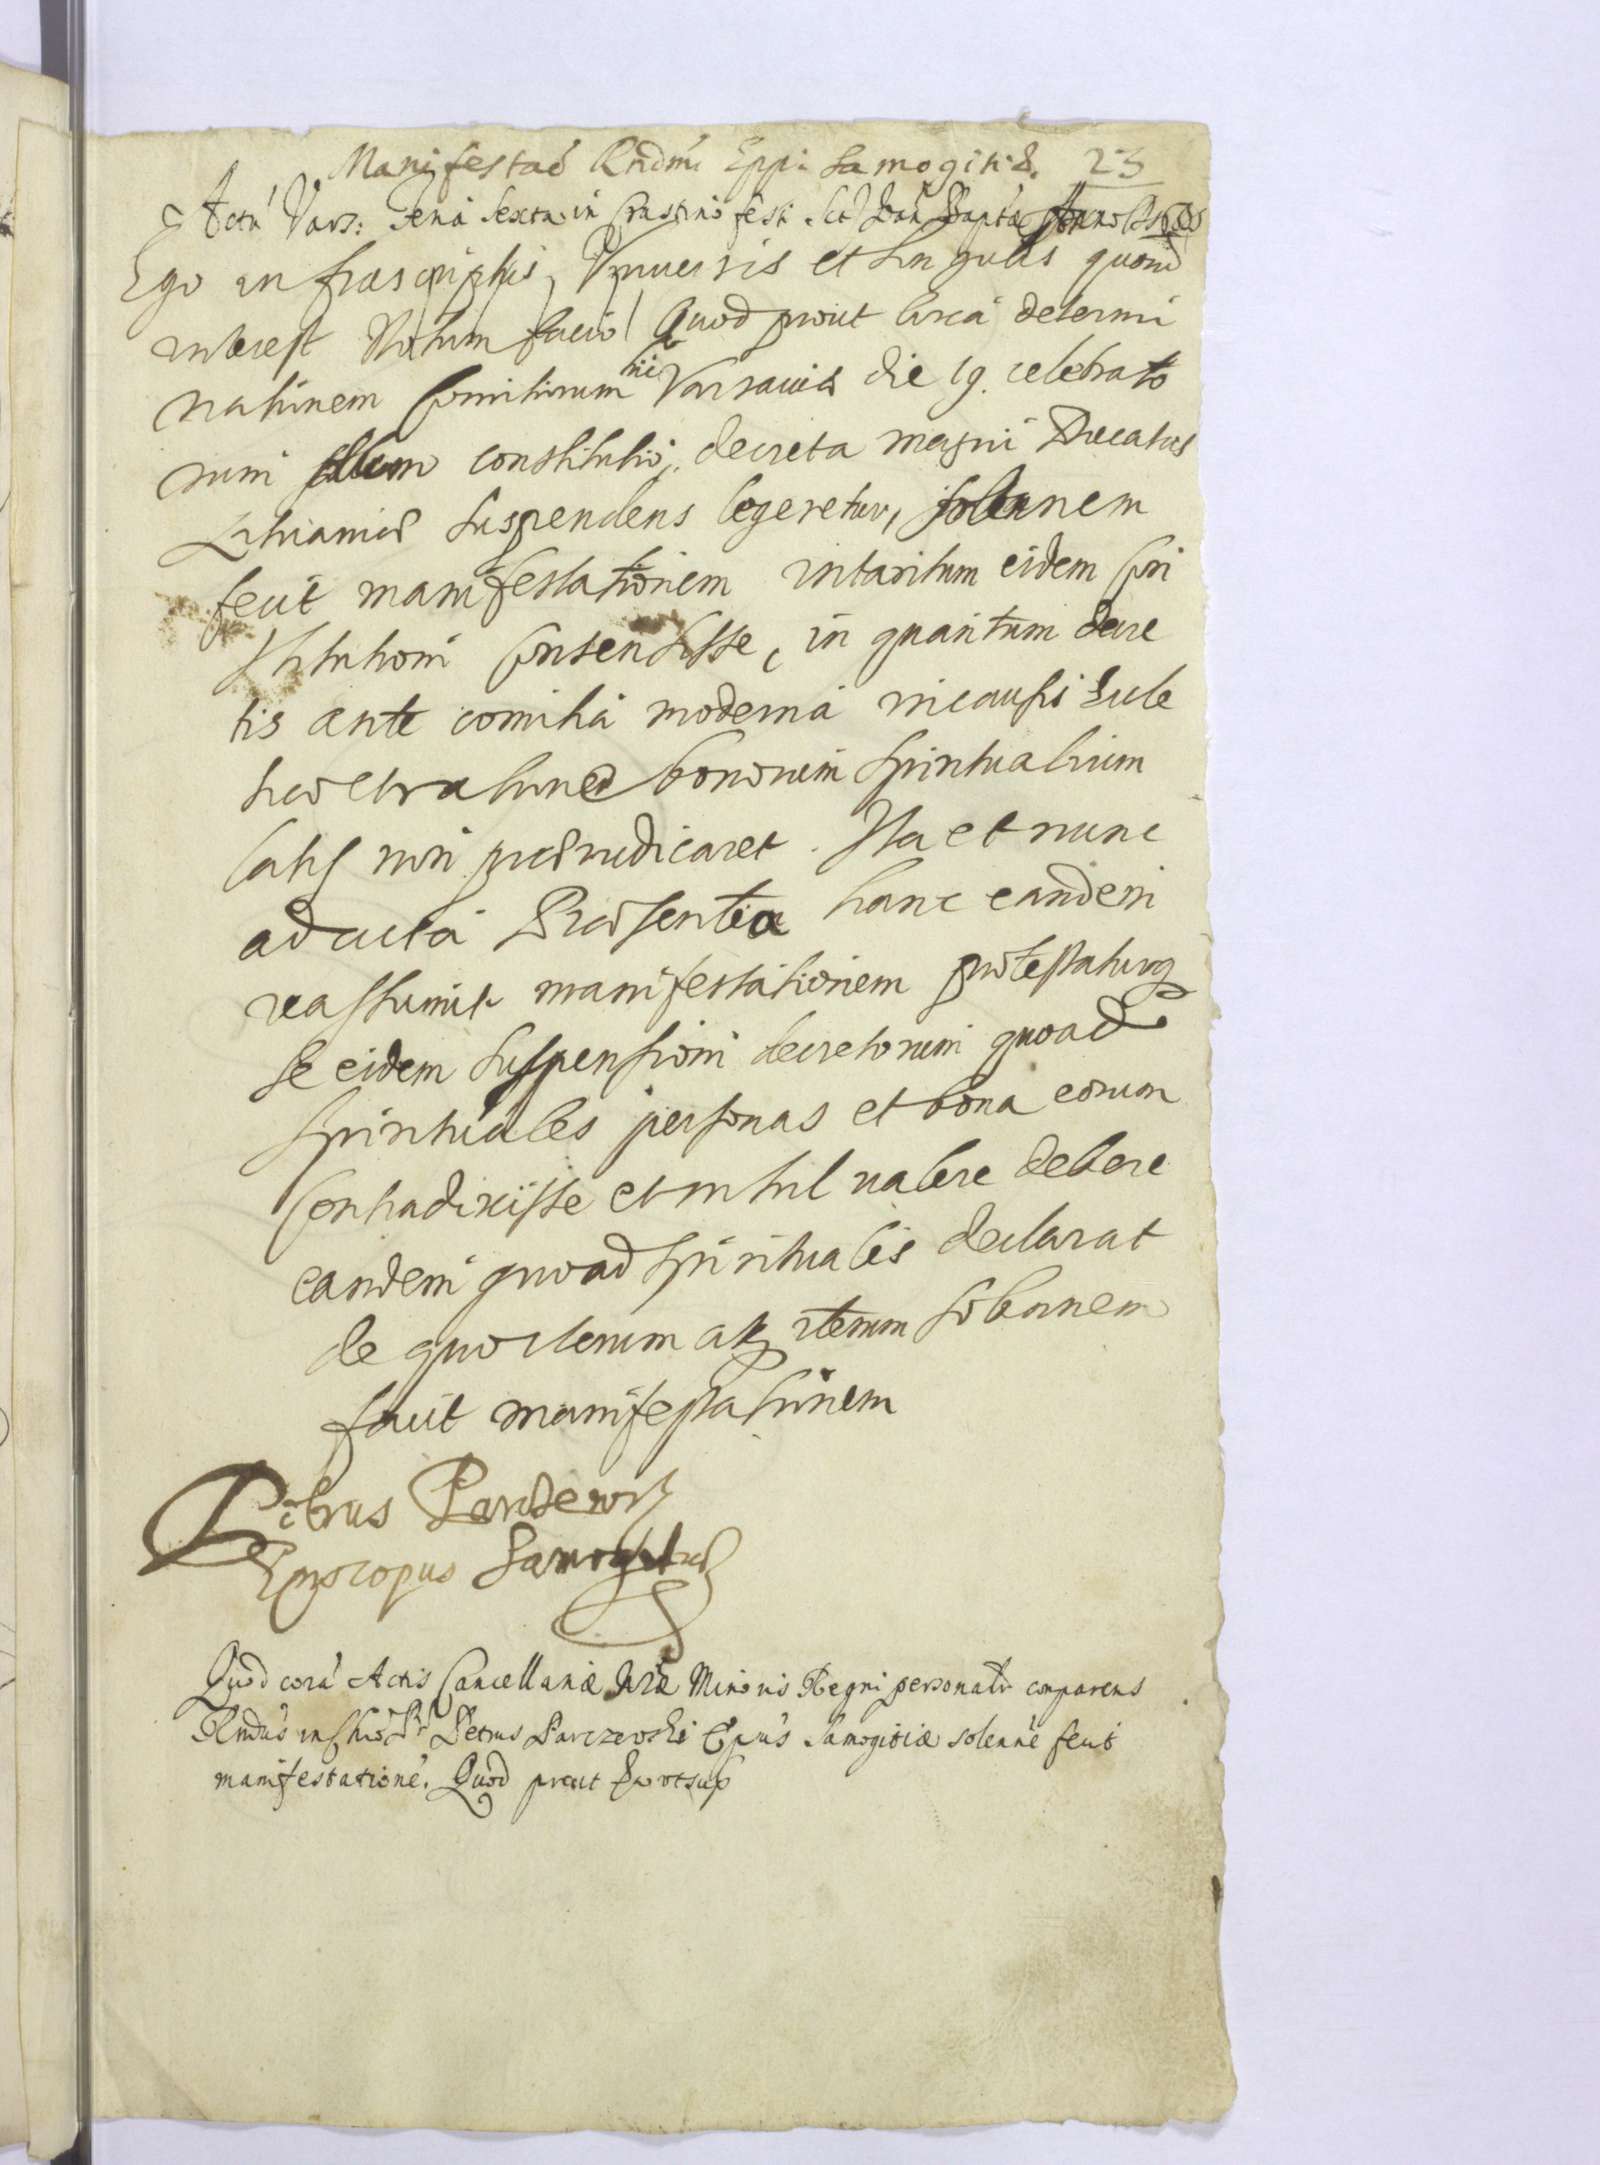 Manifestaõ Rndmi Eppi Samogitiæ. 23
Actũ Vars: Feria Sexta in Crastino festi Scti Joan Baptæ Anno
Ego infrascriptus, Vniuersis et singulis quorũ
interest Notum facio Quod prout circa determi
nationem Comitiorum hic Varsauiæ die 19. celebrato
rum dum constitutio, decreta magni Ducatus
Lithuaniæ suspendens legeretur, solennem
fecit manifestationem intantum eidem Con
stitutioni Consensisse, in quantum decre
tis ante comitia moderna in causis
bonorum spiritualium
latis non præiudicaret. Ita et nunc
ad acta Præsentia hanc eandem
reassumit manifestationem protestaturq
se eidem suspensioni decretorum quoad
spirituales personas et bona eorum
Contradixisse et nihil ualere debere
eandem quoad spirituales declarat
de quo iterum atq iterum solennem
facit manifestationem
Petrus Parczewsk
Episcopus Samogitiæ
Quod corã Actis Cancellariæ Minoris Regni personalr comparens
Rndus in Chro Pr Petrus Parczewski Epus Samogitiæ solennẽ fecit
manifestationẽ. Quod prout